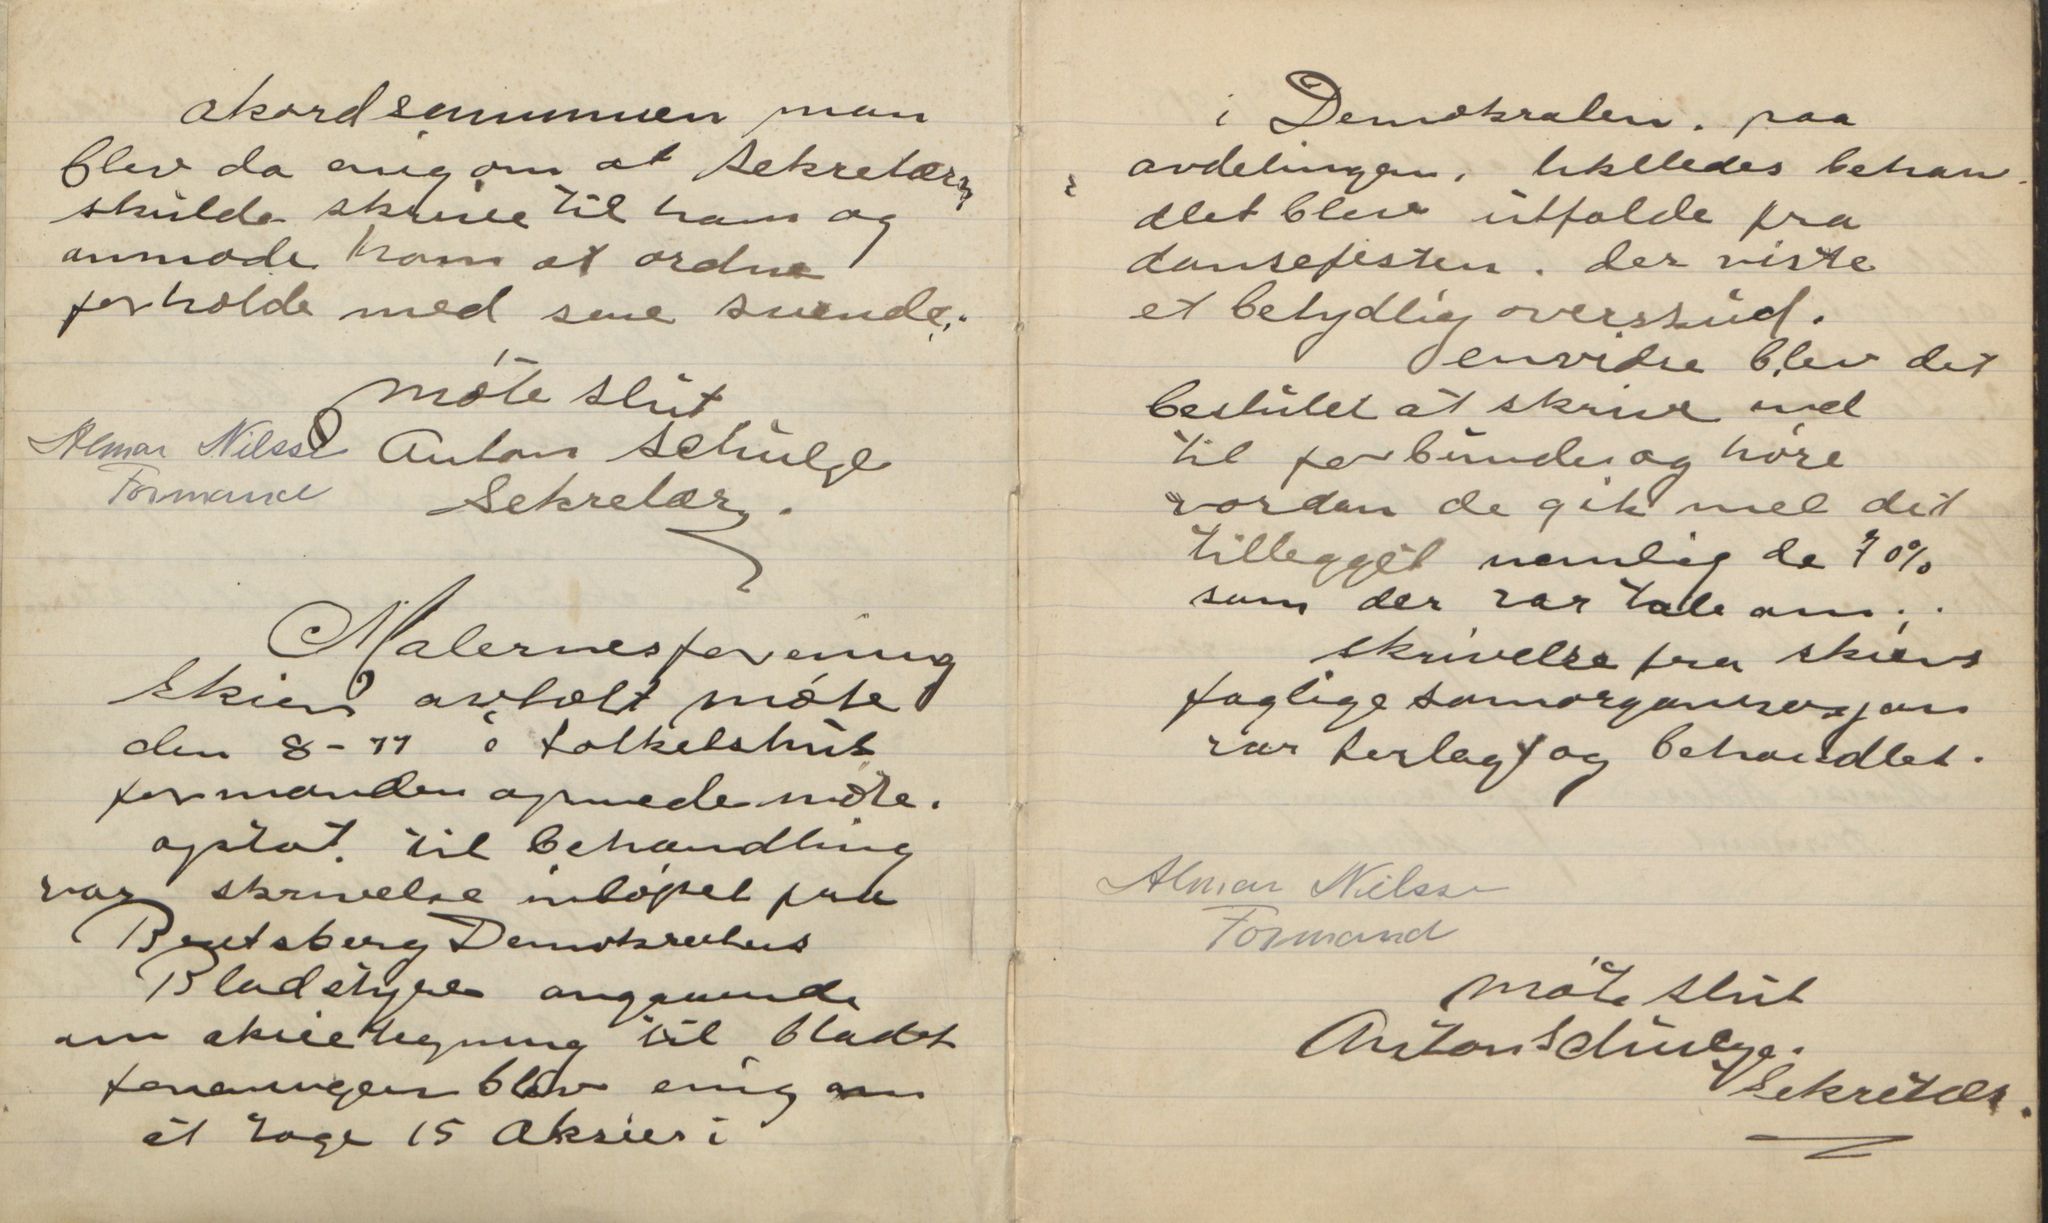 akordsummen man
blev da enig om at sekretær
skulde skrive til ham og
anmode ham at ordne
forholde med sine svende.
møte slut
Almar Nilsse Anton Schulze
Formand Sekretær.
Malernesforening
Skien avholt møte
den 8-11 i folketshus
formanden apnede møte.
opstot til behandling
var skrivelse inløpet fra
Bratsberg Demokratens
Bladstyre angaaende
om aksietegning til bladet
foreningen blev enig om
at tage 15 Aksier i
i Demokraten. paa
avdelingen. likelledes behan
dlet blev utfalde fra
dansefesten. der viste
et betydlig overskud.
envidre blev det
beslutet at skrive ind
til forbundet og høre
vordan de gik med det
tillegget nemlig de 70%
som der var tale om.
skrivelse fra skiens
faglige samorganisasjon
var ferlagt og behandlet.
Almar Nilsse
Formand
møte slut
Anton Schulze.
Sekretær.